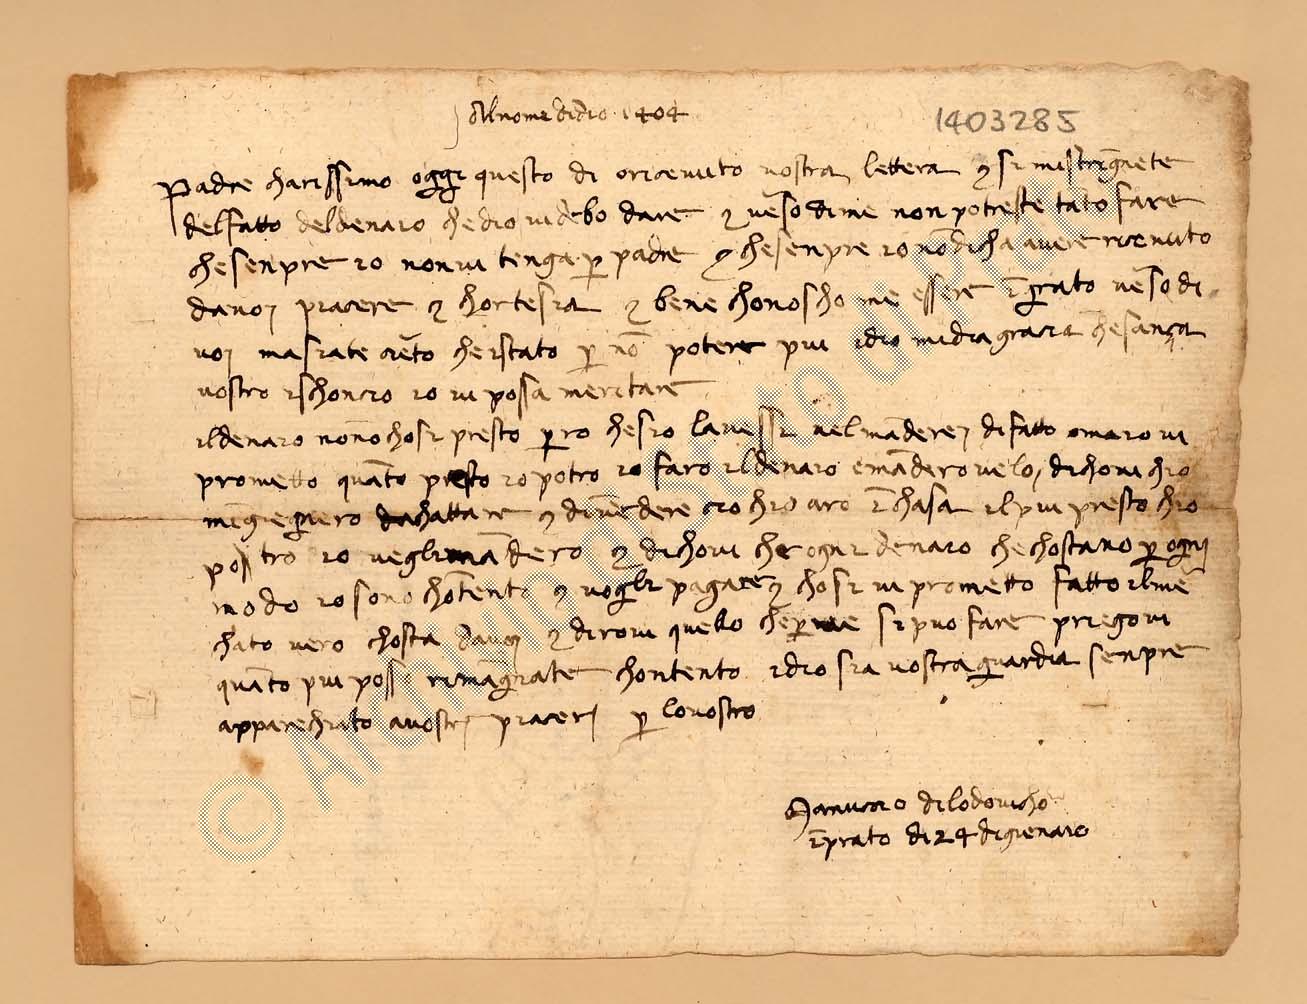 Al nome di dio 1404
1403285
Padre charissimo oggi questo di o ricieuuto uostra lettera e si mi strignete
del fatto del denaro che dio ui debo dare e uerso di me non potreste tãto fare
che senpre io non ui tenga p padre e che senpre io nõ dicha auere riceuuto
da uoj piacere e chortesia e bene chonoscho me essere ĩgrato uerso di
uoj ma siate cierto che e istato p nõ potere piu idio mi dia gracia che sança
uostro ischoncio io ui possa meritare
il denaro non o chosi presto pero che s io l auessi ue l mãderej di fatto ma io ui
prometto quãto presto io potro io faro il denaro e mãderouelo dichoui ch io
m ingiegniero d achattare e di uẽdere cio ch io aro ĩ chasa il piu presto ch io
potro io ue gli mãdero e dichoui che ogni denaro che chostano p ognj
modo io sono chõtento e uogli pagare e chosi ui prometto fatto il me
chato uero chosta da uoi e diroui quello che per me si puo fare priegoui
quãto piu posso rimãgniate chontento idio sia uostra guardia senpre
apparechiato a uostri piacerj p lo uostro
di lodouicho
ĩ prato di 24 di gienaio
© Archivio di Stato di Prato